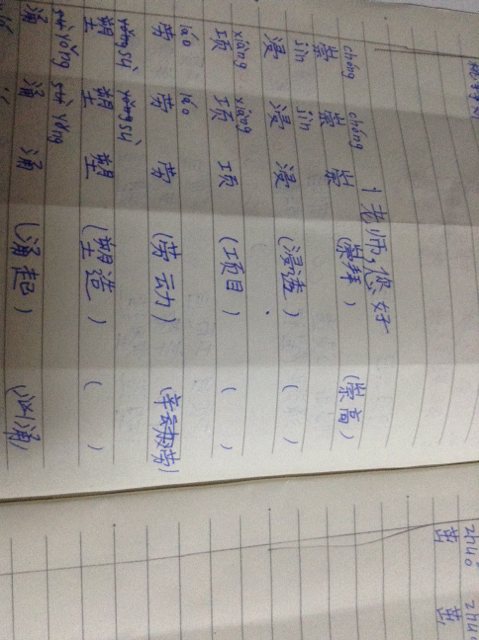 1 老师,您好
chóng chóng
崇 崇 崇 (崇拜) (崇高)
jìn jìn
浸 浸 浸 (浸透) ( )
xiàng xiàng
项 项 项 (项目) ( )
láo láo
劳 劳 劳 (劳动)
sù sù
塑 塑 塑 (塑造) ( )
yǒng yǒng
涌 涌 涌 (涌起) (汹涌)
zhuó zhuó
茁 茁